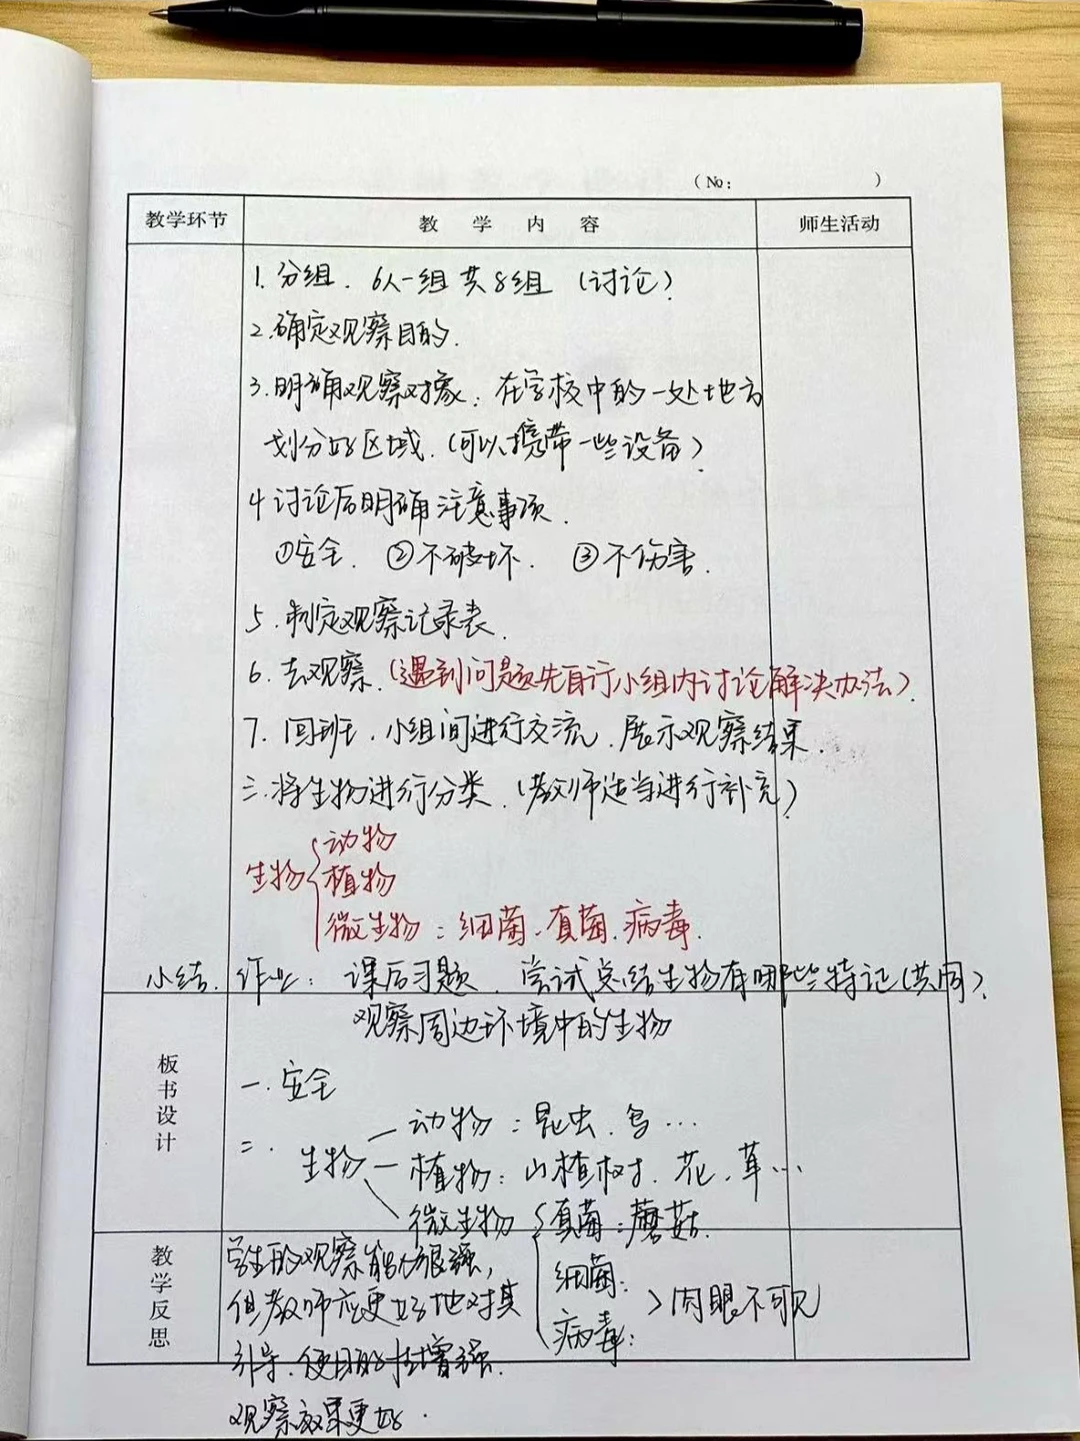 （No:　　　　）
教学环节　教　学　内　容　师生活动
1. 分组. 6人一组 共8组 (讨论)
2. 确定观察目的.
3. 明确观察对象: 在学校中的一处地方
划分好区域. (可以携带一些设备)
4 讨论后明确注意事项.
①安全. ②不破坏. ③不伤害.
5. 制定观察记录表.
6. 去观察. (遇到问题先自行小组内讨论解决办法).
7. 回班. 小组间进行交流. 展示观察结果.
三. 将生物进行分类. (教师适当进行补充)
动物
生物 { 植物
微生物: 细菌. 真菌. 病毒.
小结. 作业: 课后习题. 尝试总结生物有哪些特记 (共同).
观察周边环境中的生物
板书设计
一. 安全
二. 生物 — 动物: 昆虫. 鸟…
— 植物: 山楂树. 花. 草…
微生物 { 真菌: 蘑菇.
细菌:
病毒: > 肉眼不可见
教学反思
学生的观察能力很强,
但教师应更好地对其
引导. 使目的性增强.
观察效果更好.